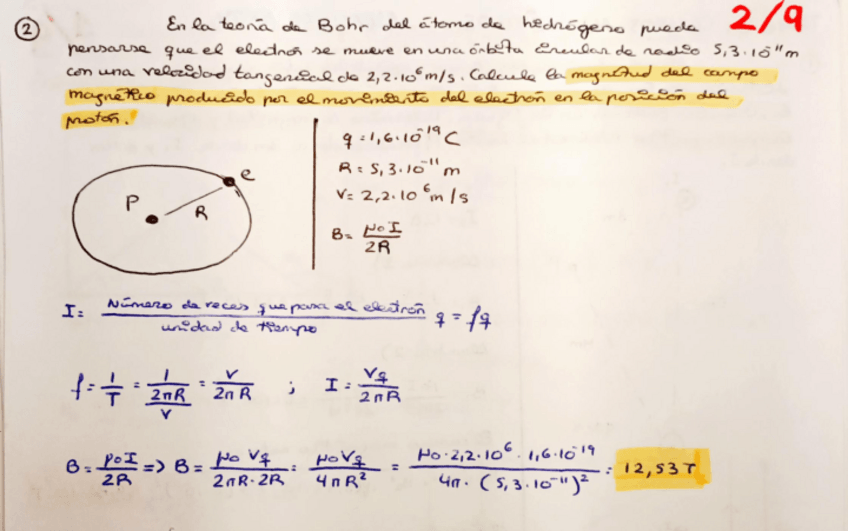 2/9
② En la teoría de Bohr del átomo de hidrógeno puede
pensarse que el electrón se mueve en una órbita circular de radio 5,3·10⁻¹¹ m
con una velocidad tangencial de 2,2·10⁶ m/s. Calcula la magnitud del campo
magnético producido por el movimiento del electrón en la posición del
protón.
q = 1,6·10⁻¹⁹ C
R = 5,3·10⁻¹¹ m
V = 2,2·10⁶ m/s
B = μ₀I / 2R
P R e
I = Número de veces que pasa el electrón / unidad de tiempo q = fq
f = 1/T = 1/(2πR/V) = V/2πR ; I = Vq/2πR
B = μ₀I/2R => B = μ₀Vq/2πR·2R = μ₀Vq/4πR² = μ₀·2,2·10⁶·1,6·10⁻¹⁹/4π·(5,3·10⁻¹¹)² = 12,53 T